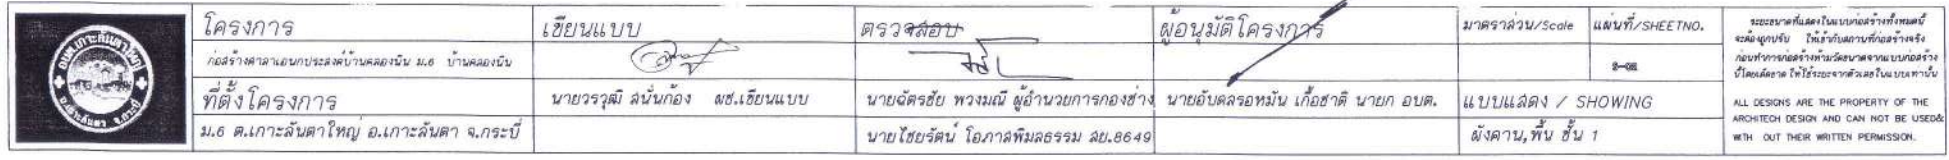 อบต.เกาะลันตาใหญ่
อ.เกาะลันตา จ.กระบี่
โครงการ
ก่อสร้างศาลาเอนกประสงค์บ้านคลองนิน ม.6 บ้านคลองนิน
ที่ตั้งโครงการ
ม.6 ต.เกาะลันตาใหญ่ อ.เกาะลันตา จ.กระบี่
เขียนแบบ
นายวรวุฒิ สนั่นก้อง ผช.เขียนแบบ
ตรวจสอบ
นายฉัตรชัย พวงมณี ผู้อำนวยการกองช่าง
นายไชยรัตน์ โอภาสพิมลธรรม สย.8649
ผู้อนุมัติโครงการ
นายอับดลรอหมัน เกื้อชาติ นายก อบต.
มาตราส่วน/Scale
แผ่นที่/SHEETNO.
แบบแสดง / SHOWING
ผังคาน,พื้น ชั้น 1
ระยะขนาดที่แสดงในแบบก่อสร้างทั้งหมดนี้
จะต้องถูกปรับ ให้เข้ากับสถานที่ก่อสร้างจริง
ก่อนทำการก่อสร้างห้ามวัดขนาดจากแบบก่อสร้าง
นี้โดยเด็ดขาด ให้ใช้ระยะจากตัวเลขในแบบเท่านั้น
ALL DESIGNS ARE THE PROPERTY OF THE
ARCHITECH DESIGN AND CAN NOT BE USED&
WITH OUT THEIR WRITTEN PERMISSION.